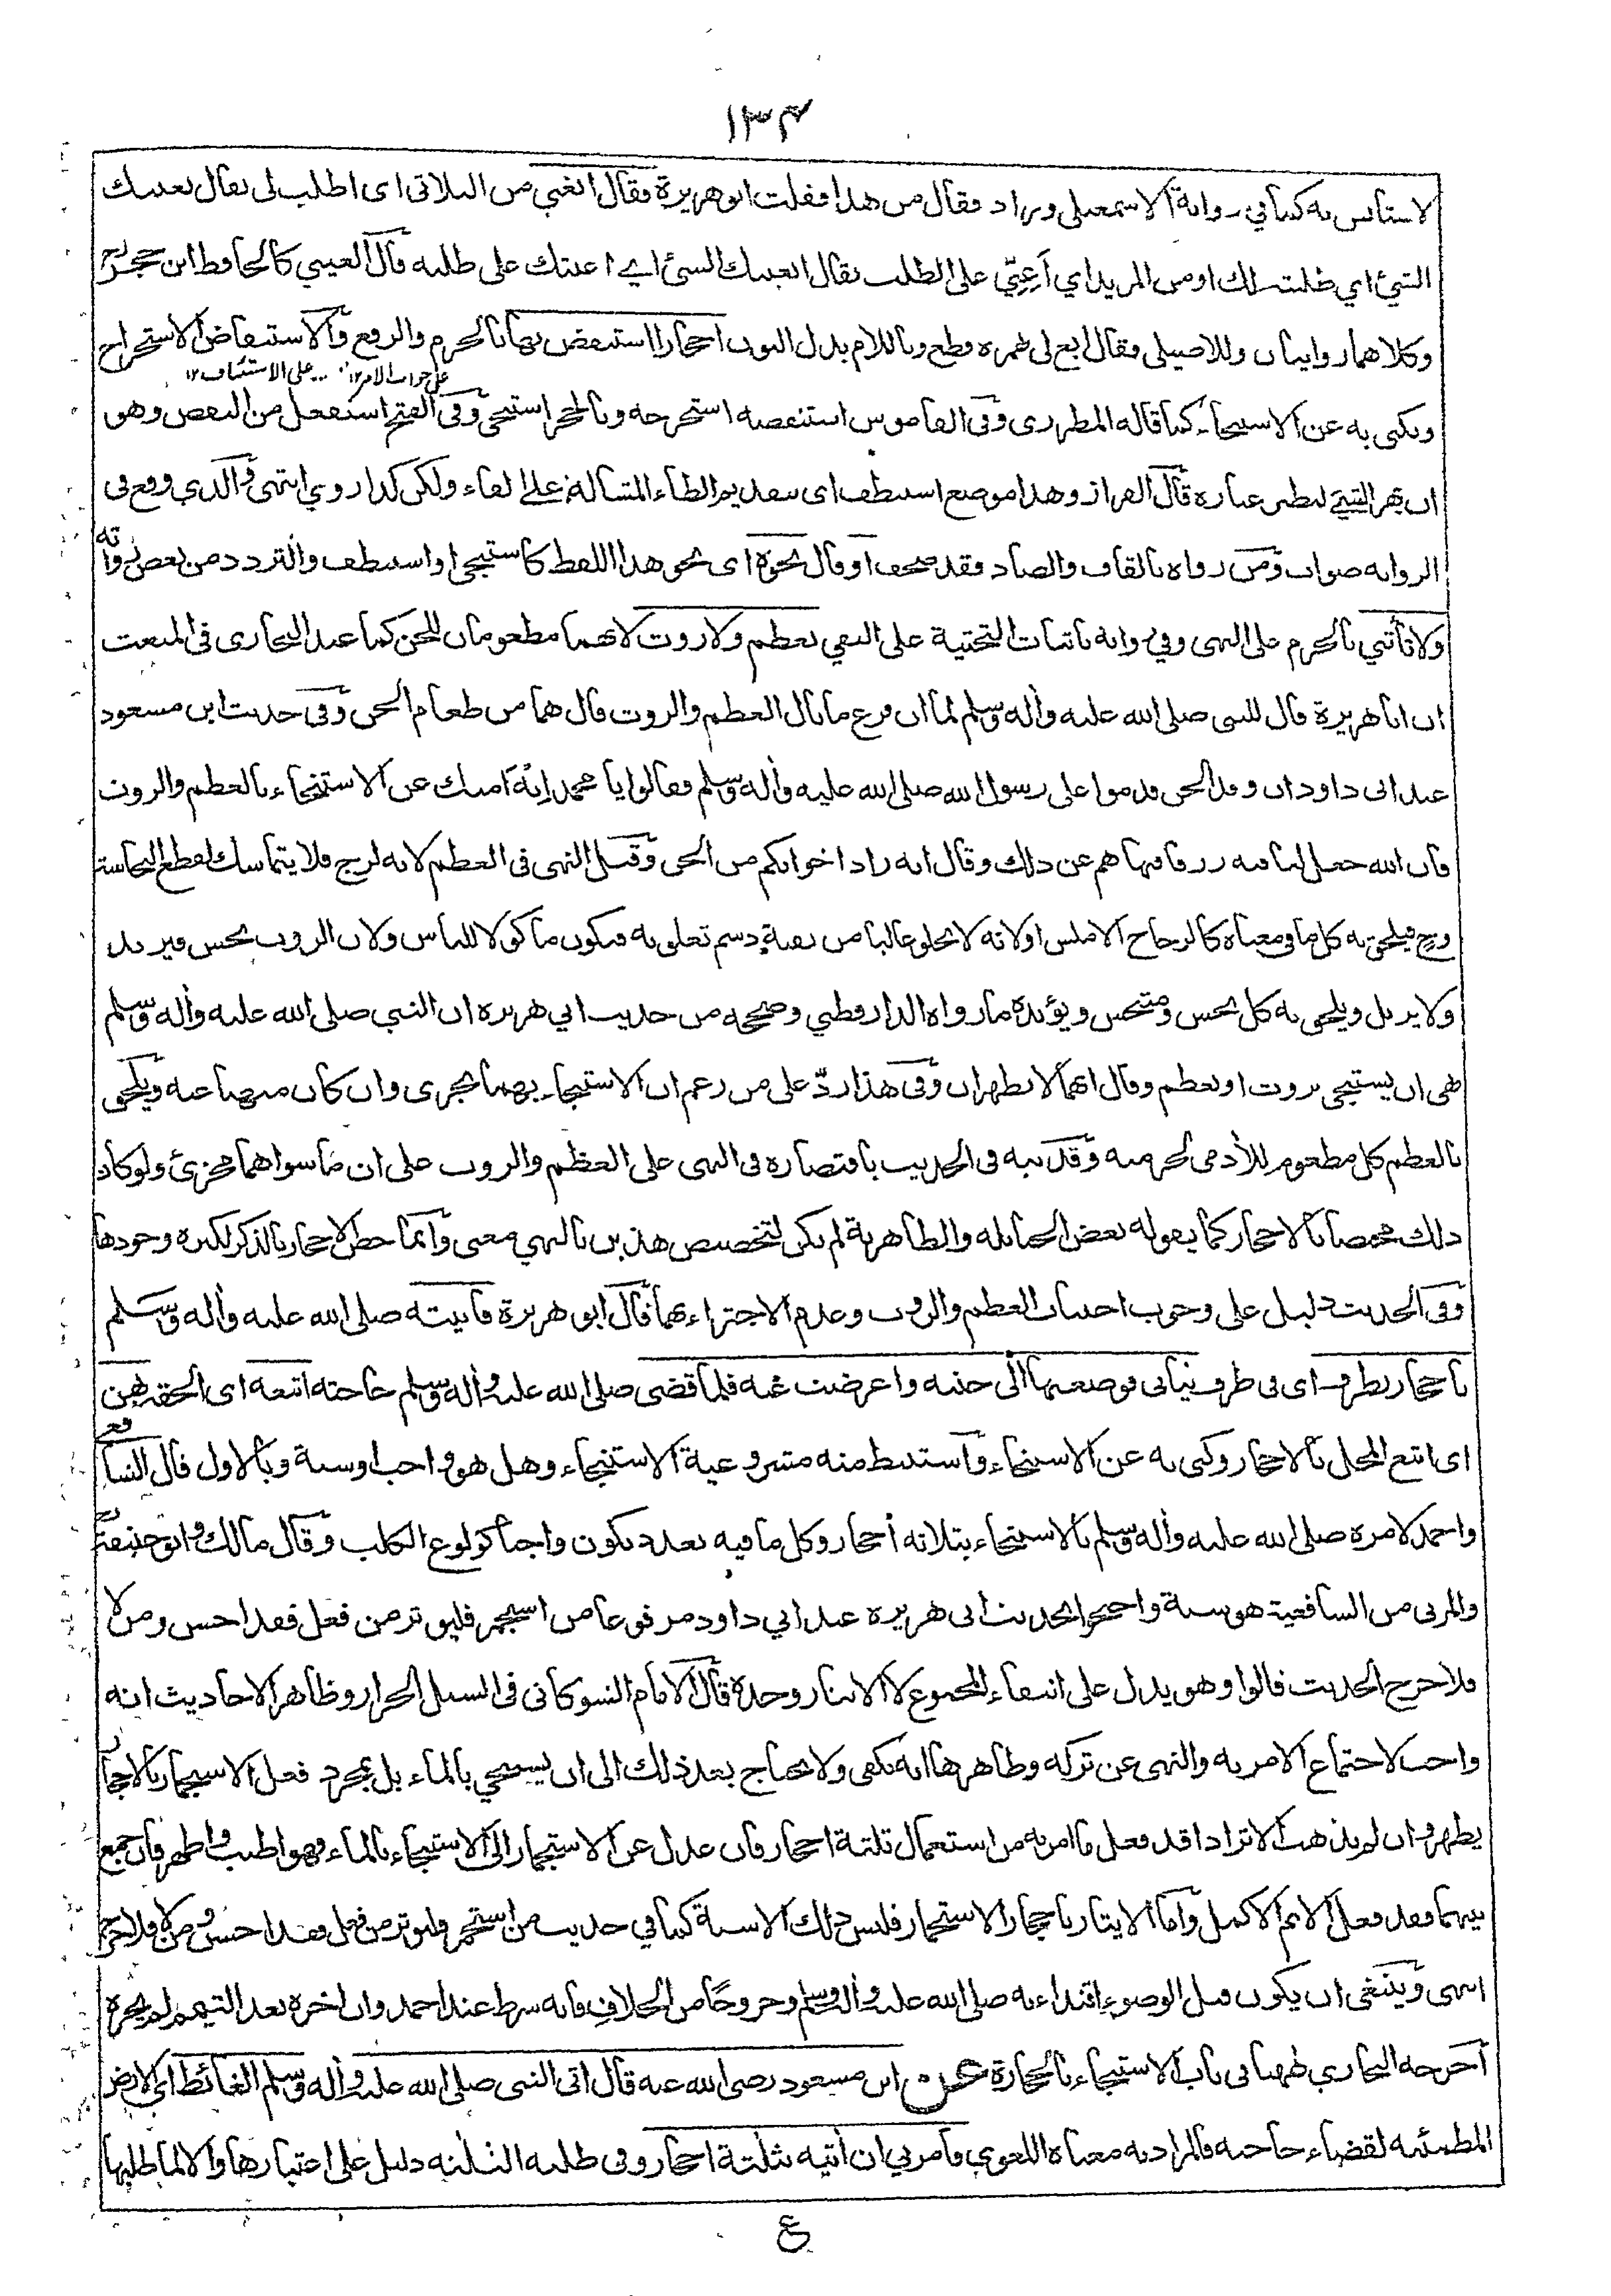 ١٣٤
لاستأنس به كما في رواية الاسمعيلي وزاد فقال من هذا فقلت ابو هريرة فقال ابغني من الثلاثي اى اطلب لى يقال بغيتك
الشئ اي طلبته لك او من المزيد اي أَعِنّي على الطلب يقال ابغيتك الشئ اي اعنتك على طلبه قال العيني كالحافظ ابن حجر رح
وكلاهما روايتان وللاصيلي فقال ابغ لى بهمزة قطع وباللام بدل النون احجارا استنفض بها بالجزم والرفع والاستنفاض الاستخراج
على جواب الامر ١٢ على الاستئناف ١٢
ويكنى به عن الاستنجاء كما قاله المطرزي وفي القاموس استنفضه استخرجه وبالحجر استنجى وفى الفتح استفعل من النفض وهو
ان يهز الشئ ليطير غباره قال القزاز وهذا موضع استنظف اى بتقديم الظاء المشالة على الفاء ولكن كذا روي انتهى والذي وقع فى
الرواية صواب ومن رواه بالقاف والصاد فقد صحف او قال نحوه اى نحو هذا اللفظ كاستنجي او استنظف والتردد من بعض رواته
ولا تأتني بالجزم على النهى وفي رواية باثبات التحتية على النفي بعظم ولا روث لانهما مطعومان للجن كما عند البخارى فى المبعث
ان ابا هريرة قال للنبى صلى الله عليه وأله وسلم لما ان فرغ ما بال العظم والروث قال هما من طعام الجن وفى حديث ابن مسعود
عند ابى داود ان وفد الجن قدموا على رسول الله صلى الله عليه وأله وسلم فقالوا يا محمد انه امتك عن الاستنجاء بالعظم والروث
فان الله جعل لنا فيه رزقا فنهاهم عن ذلك وقال انه زاد اخوانكم من الجن وقيل النهى فى العظم لانه لزج فلا يتماسك لقطع النجاسة
وح فيلحق به كل ما فى معناه كالزجاج الاملس او لانه لا يخلو غالبا من بقية دسم تعلق به فيكون مأكولا للناس ولان الروث نجس فيزيد
ولا يزيل ويلحق به كل نجس ومتنجس ويؤيده ما رواه الدارقطني وصححه من حديث ابي هريرة ان النبي صلى الله عليه وأله وسلم
نهى ان يستنجى بروث او بعظم وقال انهما لا يطهران وفى هذا ردّ على من زعم ان الاستنجاء بهما يجزى وان كان منهيا عنه ويلحق
بالعظم كل مطعوم للأدمى لحرمته وقد نبه فى الحديث باقتصاره فى النهى على العظم والروث على ان ما سواهما مجزئ ولو كان
ذلك مختصا بالاحجار كما يقوله بعض الحنابلة والظاهرية لم يكن لتخصيص هذين بالنهى معنى وانما خص الاحجار بالذكر لكثرة وجودها
وفى الحديث دليل على وجوب اجتناب العظم والروث وعدم الاجتزاء بهما قال ابو هريرة فأتيته صلى الله عليه وأله وسلم
باحجار بطرف اى فى طرف ثيابى فوضعتها الى جنبه واعرضت عنه فلما قضى صلى الله عليه وأله وسلم حاجته اتبعه اى الحقه بهن
اى اتبع المحل بالاحجار وكنى به عن الاستنجاء واستنبط منه مشروعية الاستنجاء وهل هو واجب او سنة وبالاول قال الشافعي
واحمد لامره صلى الله عليه وأله وسلم بالاستنجاء بثلاثة أحجار وكل ما فيه تعدد يكون واجبا كولوغ الكلب وقال مالك وابو حنيفة رح
والمزنى من الشافعية هو سنة واحتجوا بحديث ابى هريرة عند ابي داود مرفوعا من استجمر فليوتر من فعل فقد احسن ومن لا
فلا حرج الحديث قالوا وهو يدل على انتفاء المجموع لا الايتار وحده قال الامام الشوكانى فى السيل الجرار وظاهر الاحاديث انه
واجب لاجتماع الامر به والنهى عن تركه وظاهرها انه يكفى ولا يحتاج بعد ذلك الى ان يستنجي بالماء بل بمجرد فعل الاستجمار بالاحجار
يطهر وان لم يذهب الاثر اذا قد فعل ما امر به من استعمال ثلثة احجار فان عدل عن الاستجمار الى الاستنجاء بالماء فهو اطيب واطهر فان جمع
بينهما فقد فعل الاتم الاكمل واما الايتار باحجار الاستجمار فليس ذلك الا سنة كما في حديث من استجمر فليوتر من فعل فقد احسن ومن لا فلا حرج
انتهى وينبغى ان يكون قبل الوضوء اقتداء به صلى الله عليه وأله وسلم وخروجًا من الخلاف فانه شرط عند احمد وان اخره بعد التيمم لم يجزه
أخرجه البخاري ههنا فى باب الاستنجاء بالحجارة عن ابن مسعود رضى الله عنه قال اتى النبى صلى الله عليه وأله وسلم الغائط اى الارض
المطمئنة لقضاء حاجته فالمراد به معناه اللغوي فأمرني ان أتيه بثلثة احجار وفى طلبه الثلثة دليل على اعتبارها والا لما طلبها
ع